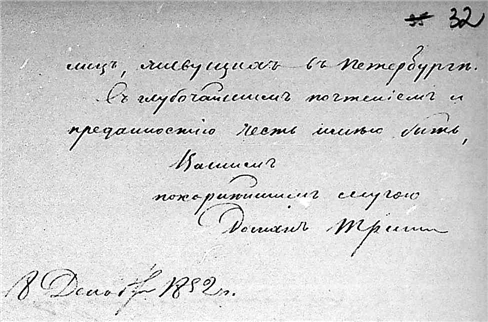 32
лицъ, живущихъ въ Петербургѣ.
Съ глубочайшимъ почтеніемъ и
преданностію честь имѣю быть,
Вашимъ
покорнѣйшимъ слугою
8 Декабря 1852 г.